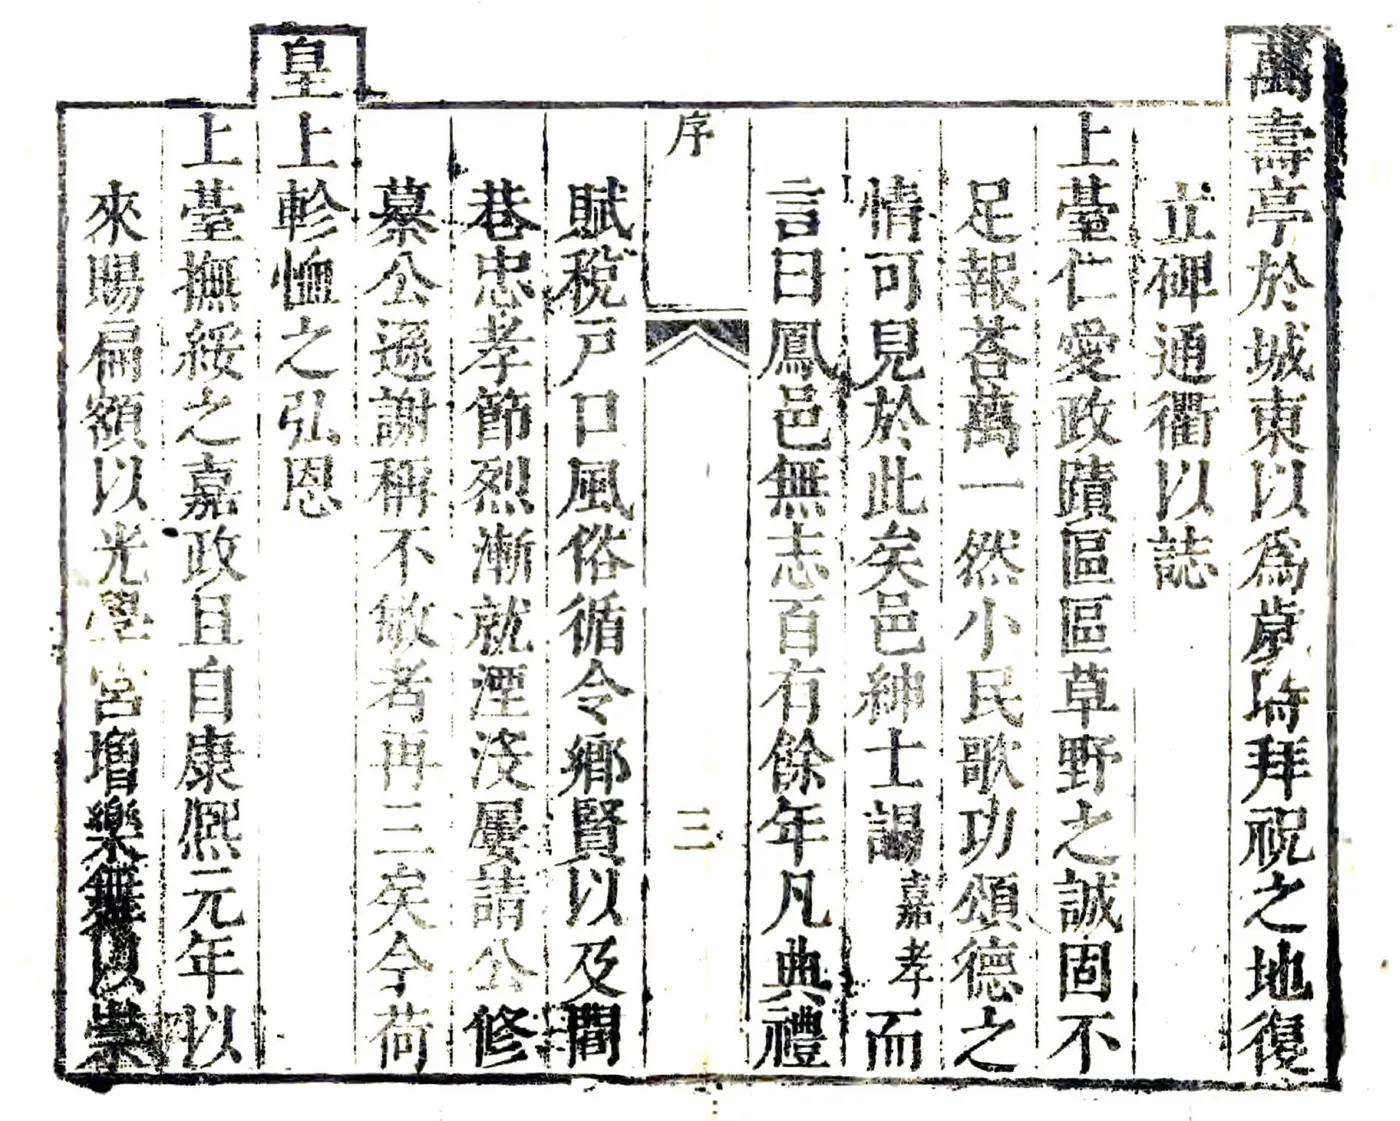 萬壽亭於城東以爲歲時拜祝之地復
立碑通衢以誌
上臺仁愛政蹟區區草野之誠固不
足報荅萬一然小民歌功頌德之
情可見於此矣邑紳士謁嘉孝而
言曰鳳邑無志百有餘年凡典禮
序
三
賦稅戶口風俗循令鄉賢以及閭
巷忠孝節烈漸就湮沒屢請公修
纂公遜謝稱不敏者再三矣今荷
皇上軫恤之弘恩
上臺撫綏之嘉政且自康熙元年以
來賜扁額以光學宮增樂舞以崇